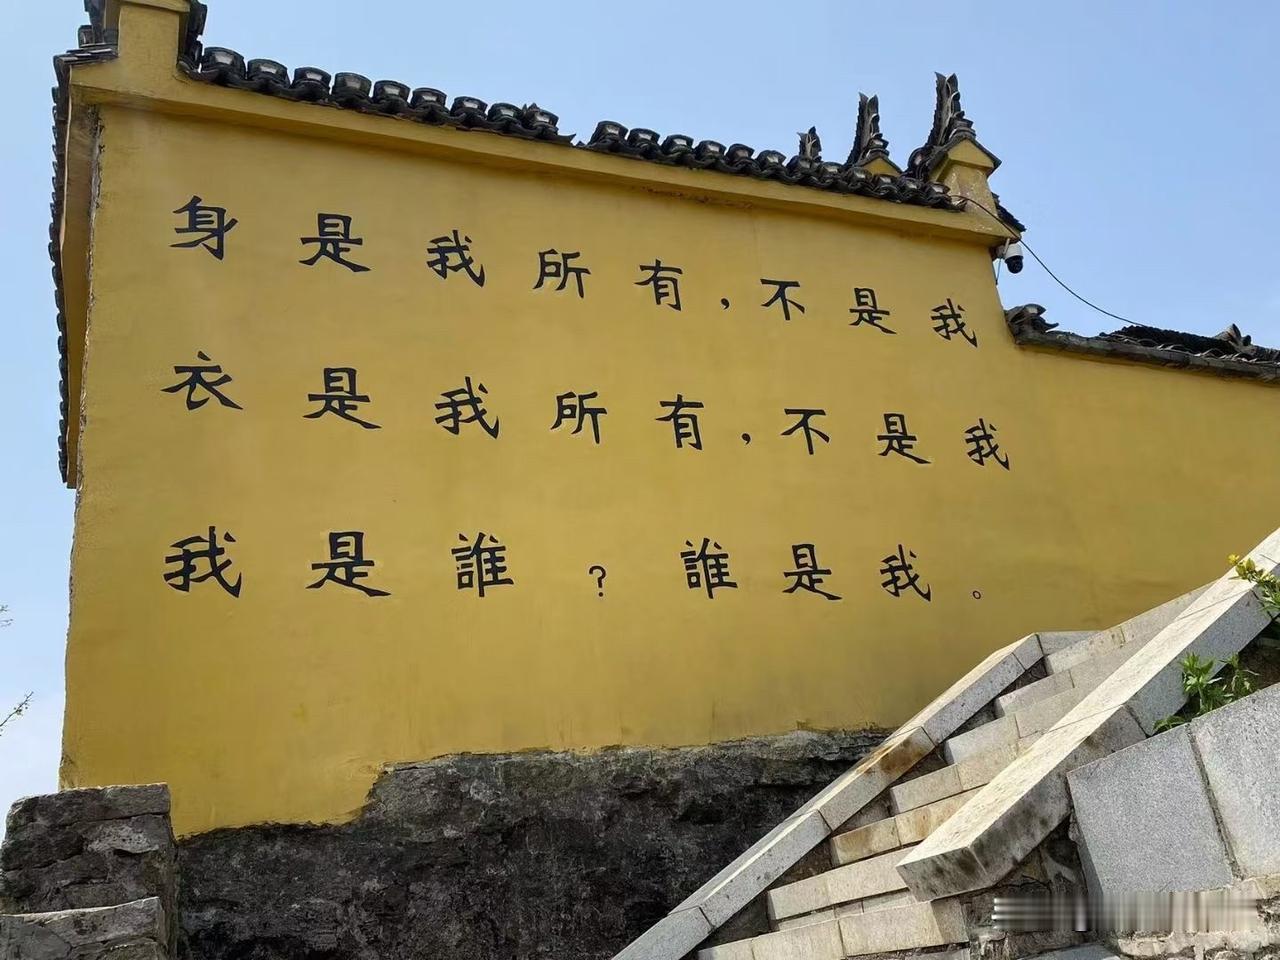 身是我所有，不是我
衣是我所有，不是我
我是誰？誰是我。